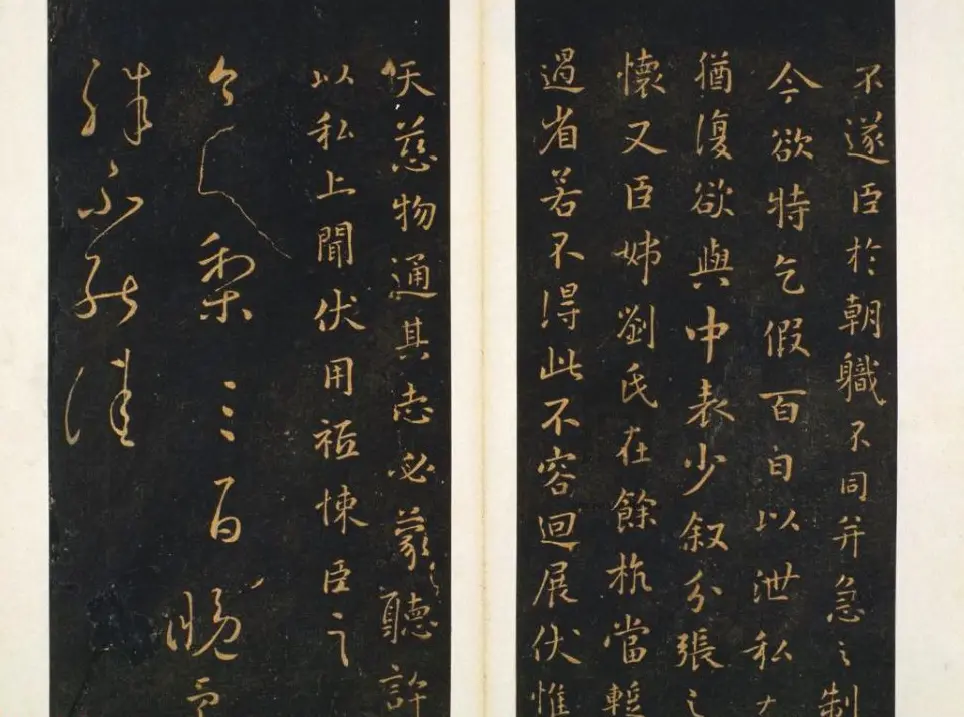 不遂臣於朝職不同并急之制
今欲特乞假百日以泄私
猶復欲與中表少叙分張之
懷又臣姊劉氏在餘杭當暫
過省若不得此不容迴展伏惟
天慈物通其志必蒙聽許
以私上聞伏用祗悚臣之
今梨三百晚
殊不能佳